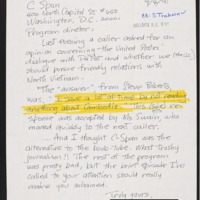 C Span
400 North Capitol St #650
Washington, D.C. 20001
Program director:
Last evening a caller asked for an
opinion concerning the United States'
dialogue with and whether we
should pursue friendly relations with
North Vietnam.
The "answer" from Steve Roberts
was "I save a lot of time by not reading
anything about Cambodia." This
response was accepted by Ms. Swain, who
moved quickly to the next caller.
And I thought C Span was the
alternative to the boob tube. What trashy
journalism!! The rest of the program
was pretty bad, but the brief episode I've
called to your attention should really
make you ashamed.
Truly yours,